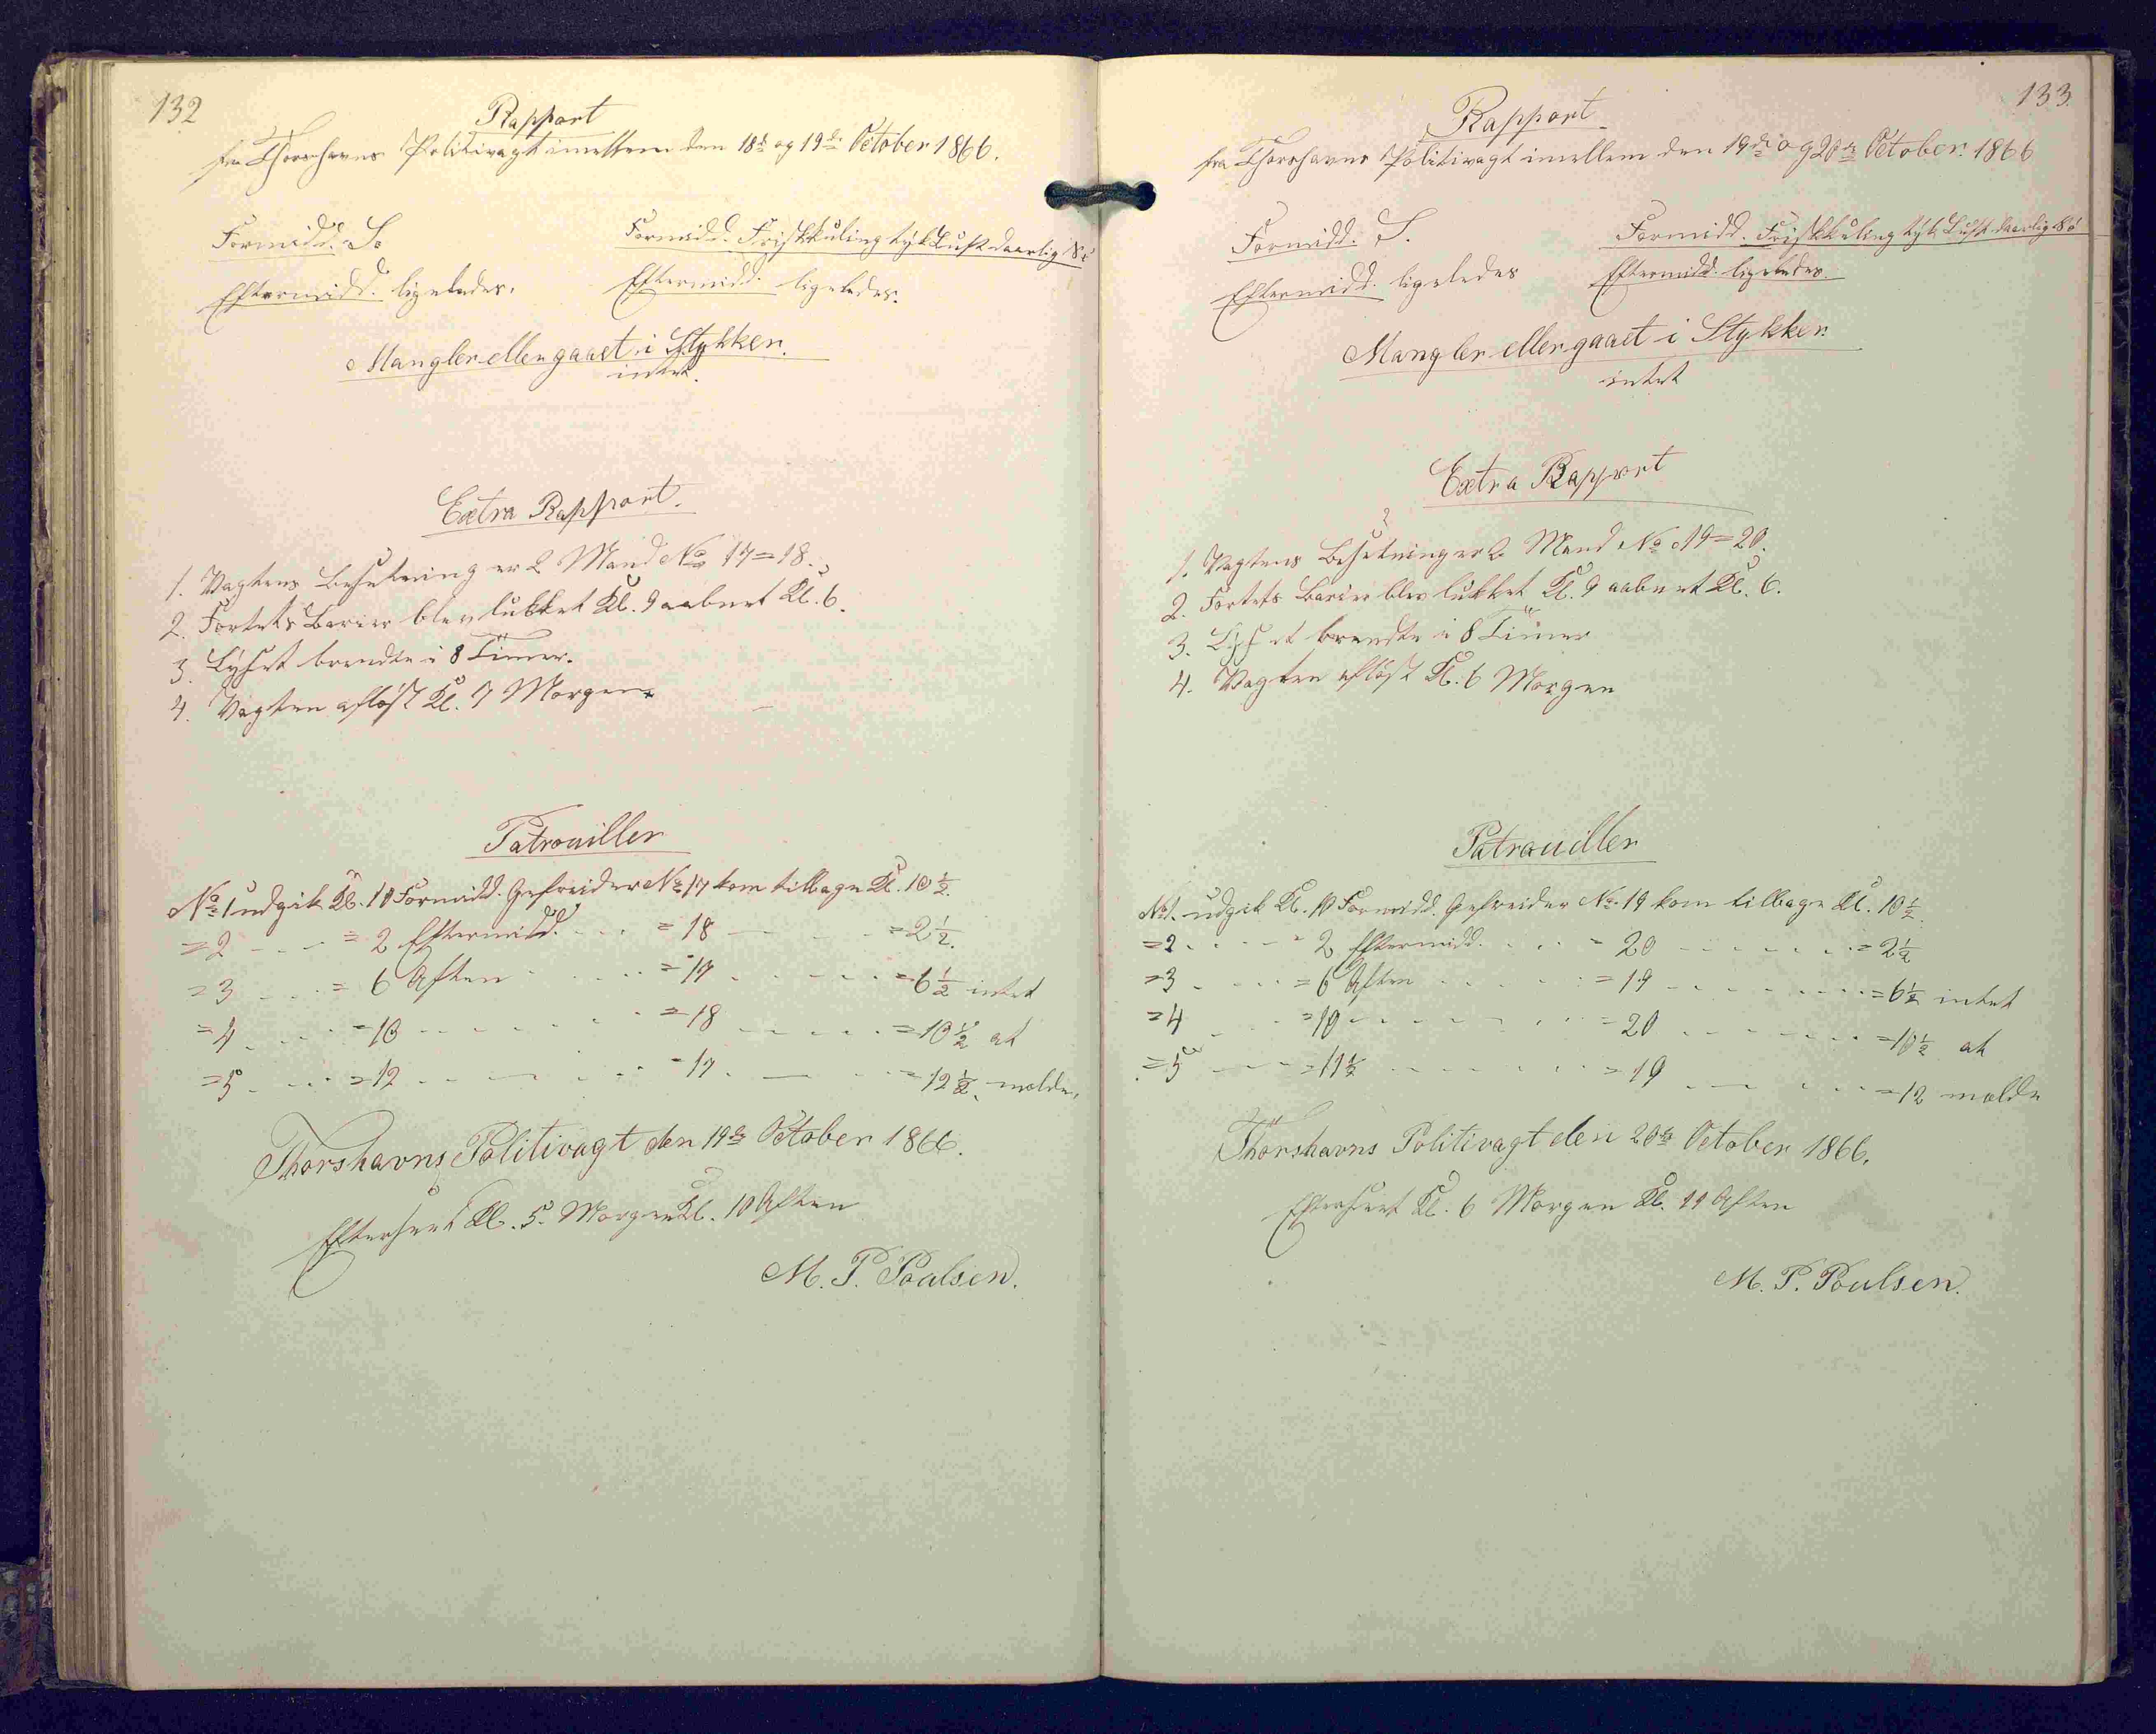 132
Rapport
fra Thorshavns Politivagt imellem den 18de og 19de October 1866.
Formidd. S.
Formidd. Frisk Kuling tyk Luft daarlig Sö
Eftermidd. ligeledes.
Eftermidd. ligeledes.
Mangler eller gaaet i Stykker.
intet.
Extra Rapport.
1. Vagtens Besetning er 2 Mand No 17=18.
2. Fortets Barier blev lukket Kl. 9 aabnet Kl. 6.
3. Lyset brendte i 8 Timer.
4. Vagten aflöst Kl. 7 Morgen
Patrouiller
No 1 udgik Kl. 10 Formidd. Gefreider No 17 kom tilbage Kl. 10 1/2.
=2 - - - = 2 Eftermidd. - - - = 18 - - - =2 1/2.
=3 - - - = 6 Aften - - - =17 - - - =6 1/2 intet
=4 - - - =10 - - - =18 - - - =10 1/2 at
=5 - - - =12 - - - =17 - - - =12 1/2. melde.
Thorshavns Politivagt den 19de October 1866.
Efterseet Kl. 5. Morgen Kl. 10 Aften
M. P. Poulsen.
133.
Rapport
fra Thorshavns Politivagt imellem den 19de og 20de October. 1866
Formidd. S.
Formidd. Frisk Kuling tyk Luft daarlig Sö
Eftermidd. ligeledes
Eftermidd. ligeledes.
Mangler eller gaaet i Stykker.
intet
Extra Rapport
1. Vagtens Besetning er 2 Mand No 19=20.
2. Fortets Barier blev lukket Kl. 9 aabnet Kl. 6.
3. Lyset brendte i 8 Timer
4. Vagten aflöst Kl. 6 Morgen
Patrouiller
No 1. udgik Kl. 10 Formidd. Gefreider No. 19 kom tilbage Kl. 10 1/2.
=2 - - - = 2 Eftermidd. - - - = 20 - - - = 2 1/2
=3 - - - =6 Aften - - - =19 - - - =6 1/2 intet
=4 - - - =10 - - - =20 - - - =10 1/2 at
=5 - - - =11 1/2 - - - =19 - - - =12 melde
Thorshavns Politivagt den 20de October 1866.
Efterseet Kl. 6 Morgen Kl. 11 Aften
M. P. Poulsen.